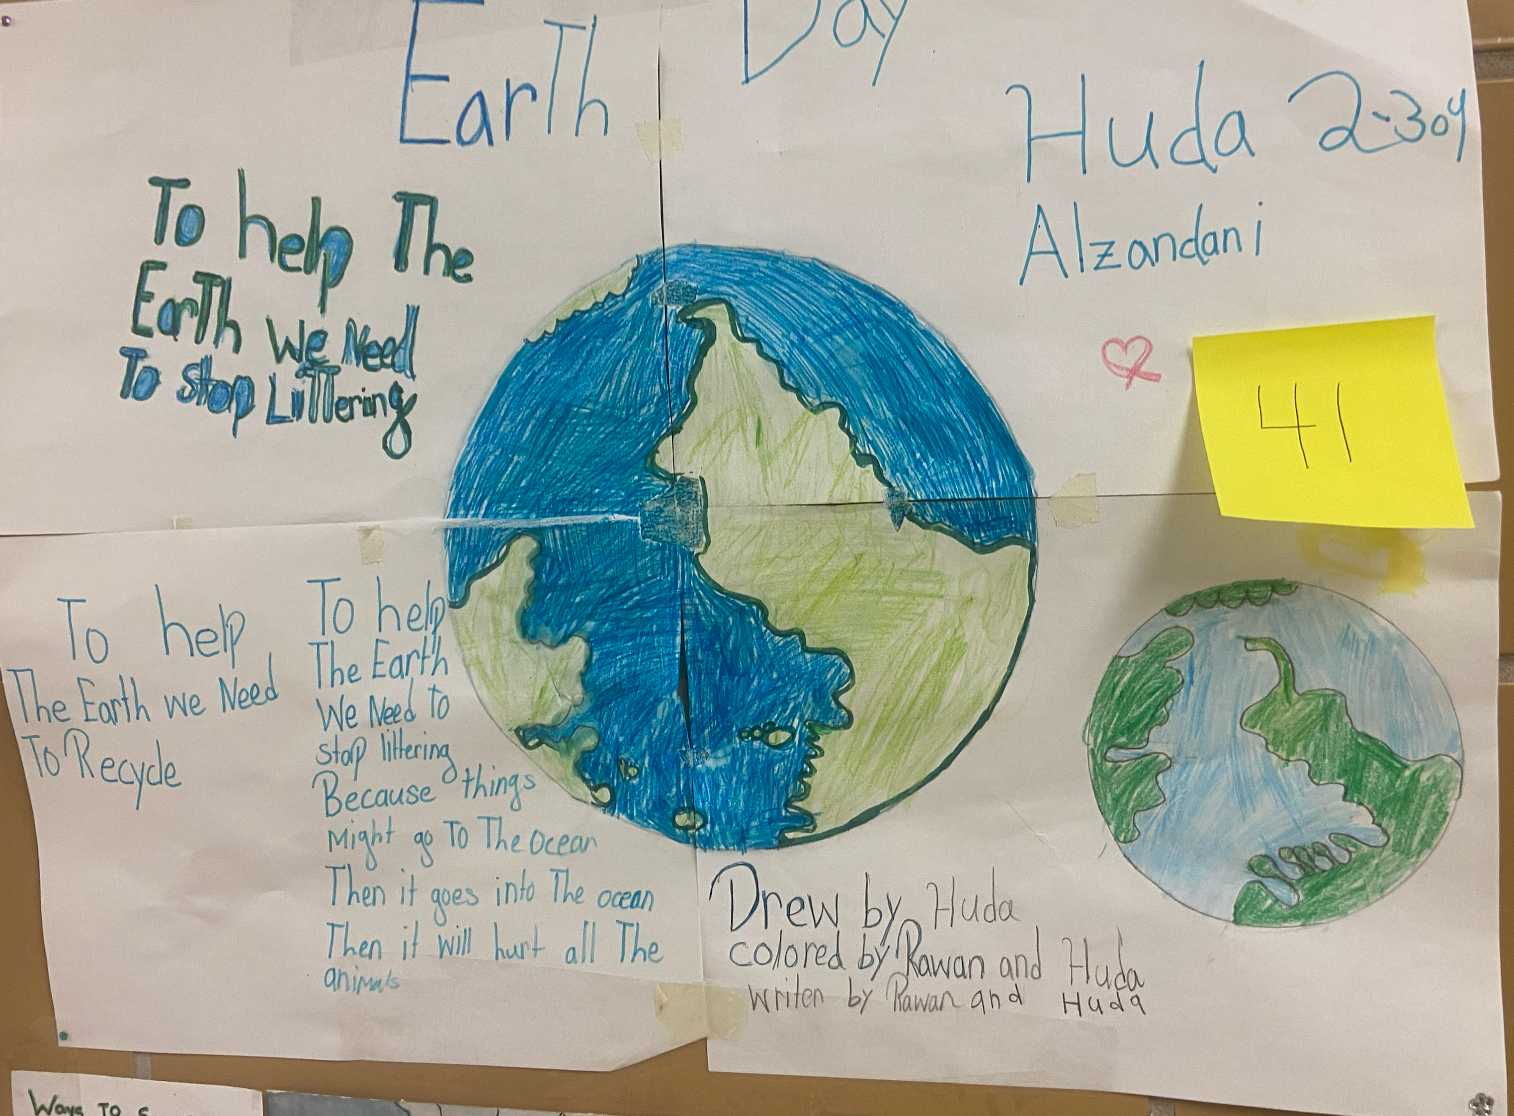 Earth Day
Huda 2-304
Alzandani
To help The
Earth We Need
To stop Littering
41
To help
The Earth we Need
To Recycle
To help
The Earth
We Need to
stop littering
Because things
Might go To The ocean
Then it goes into The ocean
Then it will hurt all The
animals
Drew by Huda
colored by Rawan and Huda
writen by Rawan and Huda
Ways To